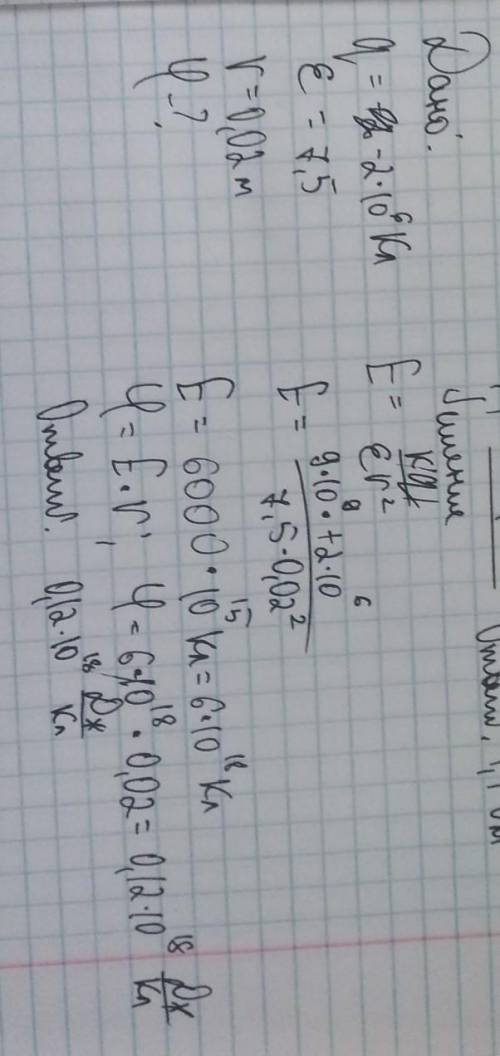 Дано:
q = -2·10⁶ Кл
ε = 7,5
r = 0,02 м
φ-?
Решение
E = k|q|/εr²
E = 9·10⁹·+2·10⁶/7,5·0,02²
E = 6000·10¹⁵ Кл = 6·10¹⁸ Кл
φ = E·r, φ = 6·10¹⁸·0,02 = 0,12·10¹⁸ Дж/Кл
Ответ: 0,12·10¹⁸ Дж/Кл